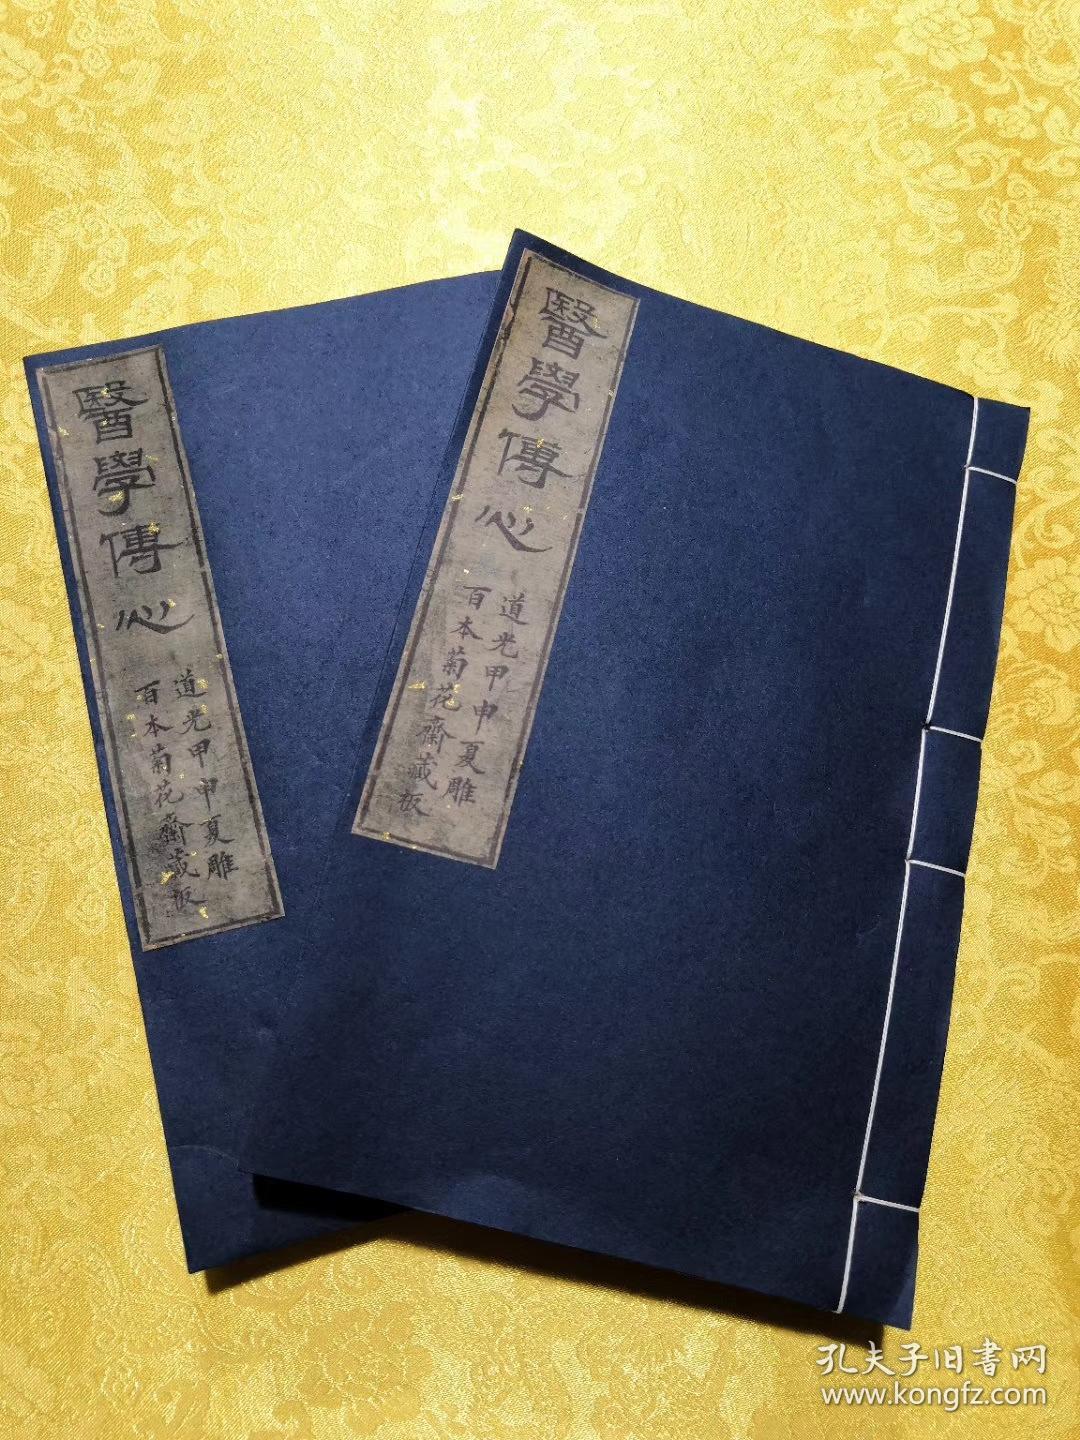 醫學傳心
道光甲申夏雕
百本菊花齋藏板
醫學傳心
道光甲申夏雕
百本菊花齋藏板
孔夫子旧書网
www.kongfz.com